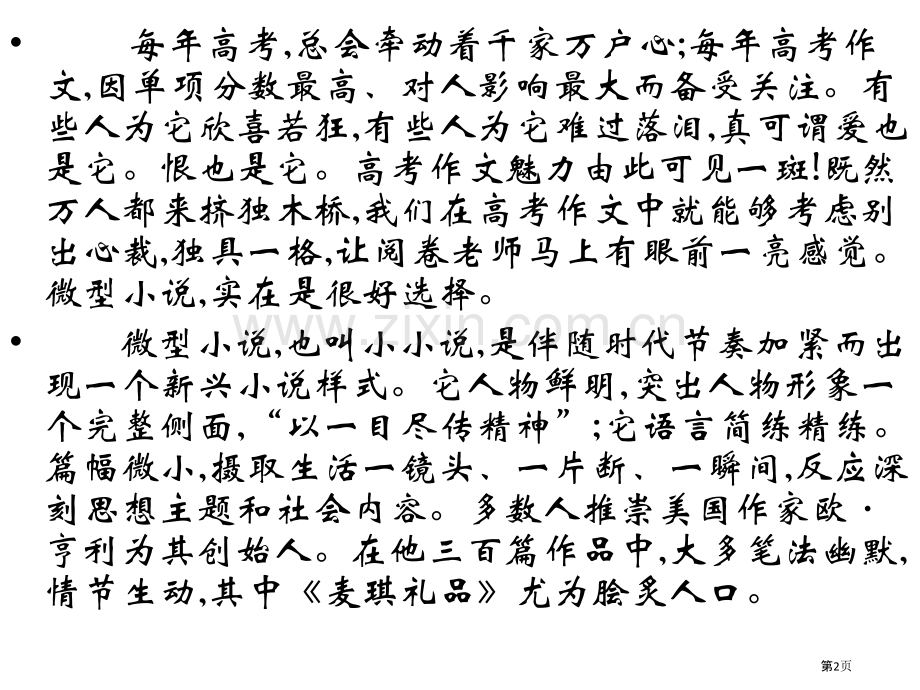 • 每年高考,总会牵动着千家万户心;每年高考作
文,因单项分数最高、对人影响最大而备受关注。有
些人为它欣喜若狂,有些人为它难过落泪,真可谓爱也
是它。恨也是它。高考作文魅力由此可见一斑!既然
万人都来挤独木桥,我们在高考作文中就能够考虑别
出心裁,独具一格,让阅卷老师马上有眼前一亮感觉。
微型小说,实在是很好选择。
• 微型小说,也叫小小说,是伴随时代节奏加紧而出
现一个新兴小说样式。它人物鲜明,突出人物形象一
个完整侧面,“以一目尽传精神”;它语言简练精练。
篇幅微小,摄取生活一镜头、一片断、一瞬间,反应深
刻思想主题和社会内容。多数人推崇美国作家欧·
亨利为其创始人。在他三百篇作品中,大多笔法幽默,
情节生动,其中《麦琪礼品》尤为脍炙人口。
www.zixin.com.cn
第2页